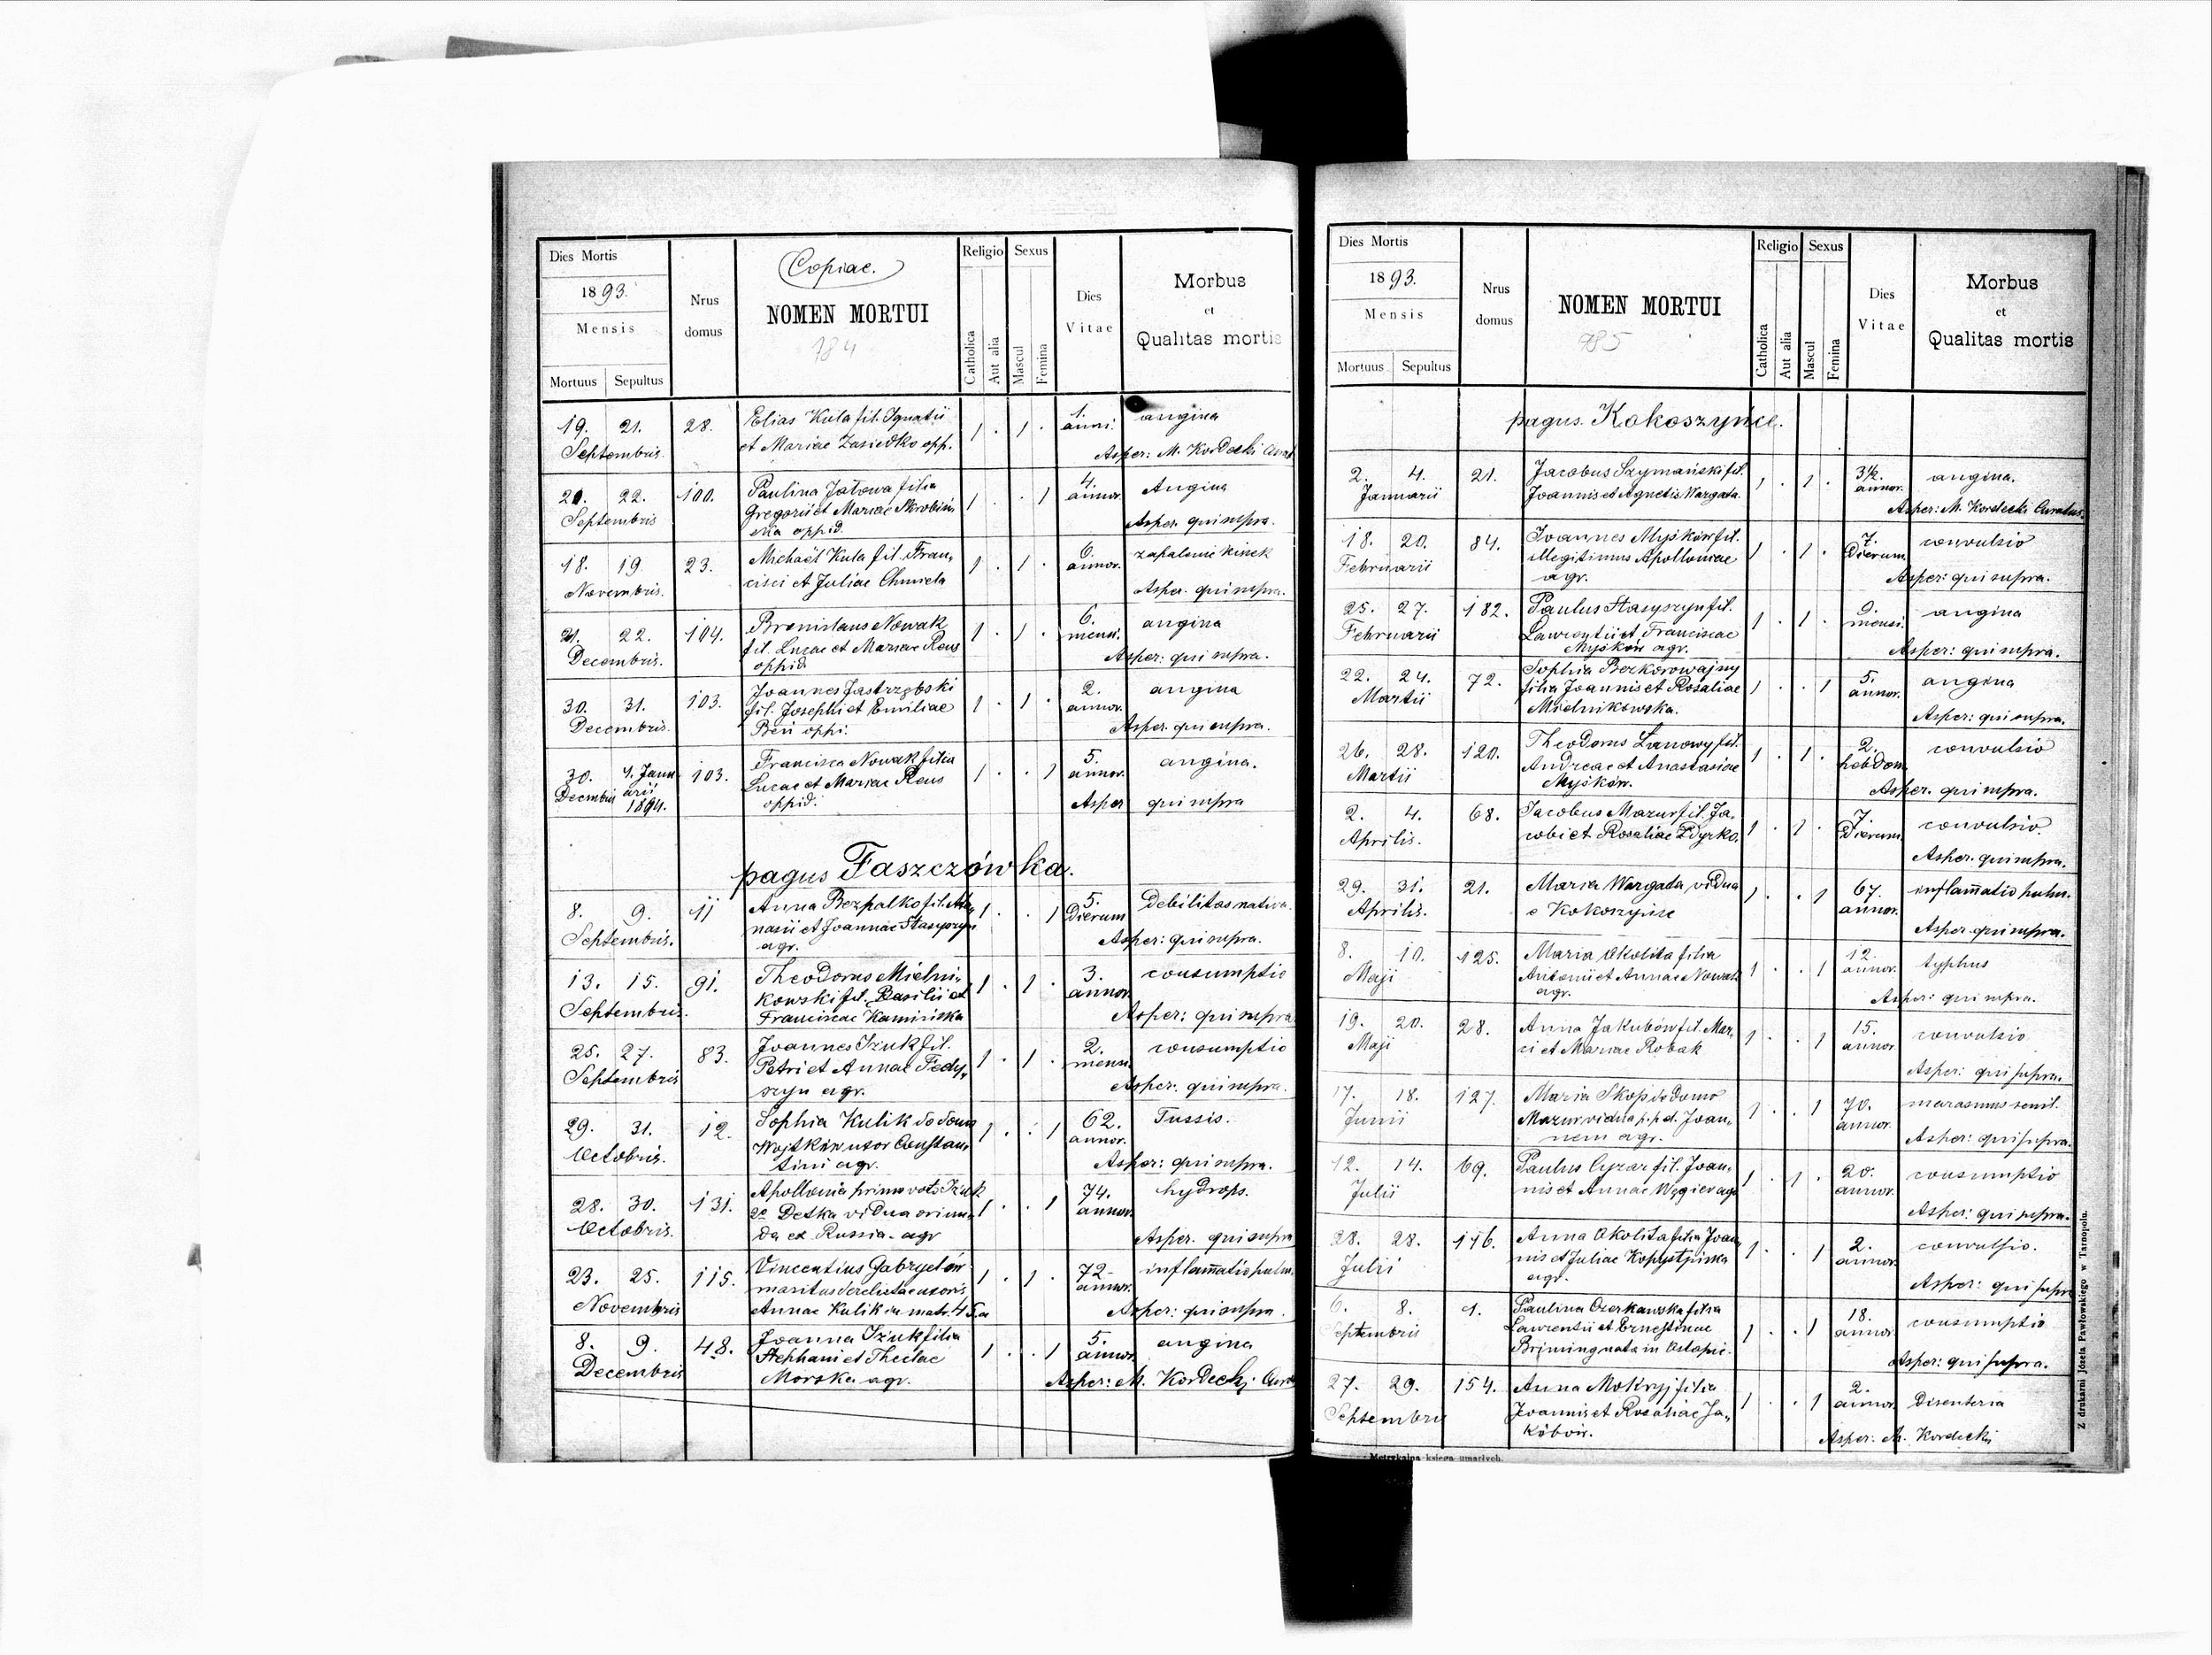 Dies Mortis
1893.
Mensis
Mortuus Sepultus
Nrus
domus
Copiae.
NOMEN MORTUI
984
Religio
Catholica
Aut alia
Sexus
Mascul
Femina
Dies
Vitae
Morbus
et
Qualitas mortis
19. 21. 28. Elias Kula fil. Ignatii 1 . 1 . 1. angina
Septembris. et Mariae Zasiedko opp. anni.
Asper: M. Kordecki
21. 22. 100. Paulina Jatowa filia 1 . . 1 4. Angina
Septembris Gregorii et Mariae annor.
oppid. Asper. qui supra.
18. 19 23. Michaël Kula fil. Fran- 1 . 1 . 6. zapalenie kiszek
Novembris. cisci et Juliae Chmiela annor.
Asper. qui supra.
21. 22. 104. Bronislaus Nowak 1 . 1 . 6. angina
Decembris. fil. Lucae et Mariae Reus mensi.
oppid. Asper: qui supra.
30. 31. 103. Joannes Jastrzębski 1 . 1 . 2. angina
Decembris. fil. Josephi et Emiliae annor.
oppi. Asper. qui supra.
30. 1. Janu 103. Francisca Nowak filia 1 . . 1 5. angina.
Decembris arii Lucae et Mariae Reus annor.
1894. oppid. Asper qui supra
pagus Faszczówka.
8. 9. 11 Anna Bezpalko fil. Atha 1 . . 1 5. Debilitas nativa.
Septembris. nasii et Joannae Stasyszyn Dierum
agr. Asper: qui supra.
13. 15. 91. Theodorus Mielni- 1 . 1 . 3. consumptio
Septembris. kowski fil. Basilii et annor.
Franciscae Kamińska Asper: qui supra
25. 27. 83. Joannes Iżuk fil. 1 . 1 . 2. consumptio
Septembris Petri et Annae Fedy- mens.
szyn agr. Asper: qui supra.
29. 31. 12. Sophia Kulik do domu 1 . . 1 62. Tussis.
Octobris. Wojtków uxor Constan- annor.
tini agr. Asper: qui supra.
28. 30. 131. Apollonia primo voto Iżuk 1 . . 1 74. hydrops.
Octobris. 2o Detka vidua oriun- annor.
da ex Russia. agr Asper. qui supra
23. 25. 115. Vincentius Gabryelów 1 . 1 . 72 inflamatio pulm.
Novembris maritus derelictae uxoris annor.
Annae Kulik in mat. 45 a Asper: qui supra.
8. 9. 48. Joanna Iżuk filia 1 . . 1 5. angina
Decembris Stephani et Theclae annor.
Morska agr. Asper: M. Kordecki
Dies Mortis
1893.
Mensis
Mortuus Sepultus
Nrus
domus
NOMEN MORTUI
985
Religio
Catholica
Aut alia
Sexus
Mascul
Femina
Dies
Vitae
Morbus
et
Qualitas mortis
pagus. Kokoszyńce.
2. 4. 21. Jacobus Szymański fil. 1 . 1 . 3½ angina.
Januarii Joannis et Agnetis Wargata. annor.
Asper: M. Kordecki Curatus.
18. 20. 84. Joannes Myśków fil. 1 . 1 . 7. convulsio
Februarii illegitimus Apolloniae Dierum
agr. Asper: qui supra.
25. 27. 182. Paulus Stasyszyn fil. 1 . 1 . 9. angina
Februarii Laurentii et Franciscae mensi.
Myśków agr. Asper: qui supra.
22. 24. 72. Sophia Bezkorowajny 1 . . 1 5. angina
Martii filia Joannis et Rosaliae annor.
Mielnikowska. Asper: qui supra.
26. 28. 120. Theodorus Lanowy fil. 1 . 1 . 2. convulsio
Martii Andreae et Anastasiae hebdom.
Myśków. Asper. qui supra.
2. 4. 68. Jacobus Mazur fil. Ja- 1 . 1 . 7. convulsio.
Aprilis. cobi et Rosaliae Dierum.
Asper. qui supra.
29. 31. 21. Maria Wargata vidua 1 . . 1 67. inflamatio pulm.
Aprilis. e Kokoszyńce annor.
Asper qui supra.
8. 10. 125. Maria Okolita filia 1 . . 1 12. typhus
Maji Antonii et Annae Nowak annor.
agr. Asper: qui supra.
19. 20. 28. Anna Jakubów fil. Mar- 1 . . 1 15. convulsio
Maji ci et Mariae Robak annor
Asper: qui supra.
17. 18. 127. Maria Skop do Domo 1 . . 1 70. marasmus senil.
Junii Mazur vidua p. p. d. Joan- annor.
nem agr. Asper: qui supra.
12. 14. 69. Paulus Cyzar fil. Joan- 1 . 1 . 20. consumptio
Julii nis et Annae Węgier agr annor.
Asper: qui supra.
28. 28. 116. Anna Okolita filia Joan 1 . . 1 2. convulsio.
Julii nis et Juliae Kopystyńska annor.
agr. Asper: qui supra
6. 8. 1. Paulina Czerkawska filia 1 . . 1 18. consumptio
Septembris Laurentii et Ernestinae annor.
Briming nata in Ostapie. Asper: qui supra.
27. 29. 154. Anna Mokryj filia 1 . . 1 2. Disenteria
Septembris Joannis et Rosaliae Ja- annor.
kóbów. Asper. M. Kordecki
Metrykalna księga umarłych.
Z drukarni Józefa Pawłowskiego w Tarnopolu.